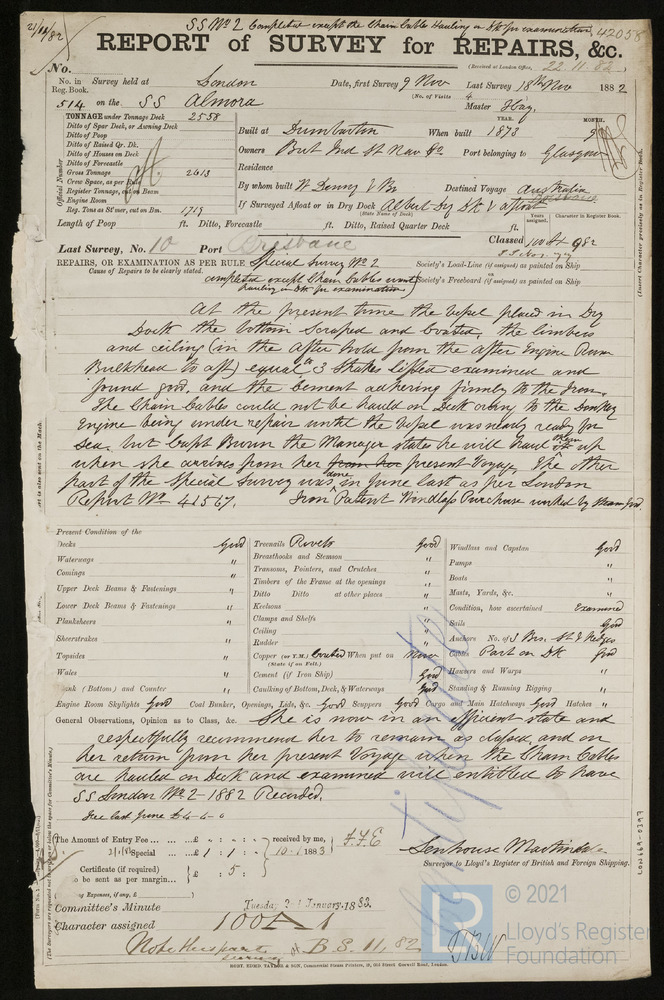 21/11/82
SS No 2 Completed except the Chain Cables Hauling on Dk for examination
42058
REPORT of SURVEY for REPAIRS, &c.
No.
(Received at London Office, 22.11.82)
No. in Reg. Book.
Survey held at London
Date, first Survey 9 Nov Last Survey 18th Nov 1882
(No. of Visits 4
514 on the SS Almora
Master Hay,
TONNAGE under Tonnage Deck 2558
Ditto of Spar Deck, or Awning Deck
Ditto of Poop
Ditto of Raised Qr. Dk.
Ditto of Houses on Deck
Ditto of Forecastle
Gross Tonnage 2613
Crew Space, as per Rule
Register Tonnage, cut on Beam
Engine Room
Reg. Tons as St'mer, cut on Bm. 1719
Official Number
YEAR. MONTH.
Built at Dumbarton When built 1873 9
Owners Brit Ind St Nav Co Port belonging to Glasgow
Residence
By whom built W Denny & Br Destined Voyage Australia
If Surveyed Afloat or in Dry Dock Albert Dry Dk & afloat
(State Name of Dock)
Years assigned. Character in Register Book.
Length of Poop ft. Ditto, Forecastle ft. Ditto, Raised Quarter Deck ft.
Last Survey, No. 10 Port Brisbane
Classed 100 A1 9 82
REPAIRS, OR EXAMINATION AS PER RULE Special Survey No 2
Cause of Repairs to be clearly stated.
Society's Load-Line (if assigned) as painted on Ship
completed except Chain Cables want
hauling on Dk for examination)
Society's Freeboard (if assigned) as painted on Ship
At the present time the Vessel placed in Dry
Dock the bottom Scraped and Coated, the limbers
and ceiling (in the after hold from the after Engine Room
Bulkhead to aft) equal to 3 Strakes lifted examined and
found good, and the Cement adhering firmly to the Iron.
The Chain Cables could not be hauld on Deck owing to the Donkey
Engine being under repair until the Vessel was nearly ready for
Sea, but Capt Brown the Manager states he will haul them up
when she arrives from her from her present Voyage, The other
part of the Special Survey was done in June last as per London
Report No 41567. Iron Patent Windlass Purchase worked by Steam Good.
Present Condition of the
Decks Good
Waterways "
Comings "
Upper Deck Beams & Fastenings "
Lower Deck Beams & Fastenings "
Planksheers "
Sheerstrakes "
Topsides "
Wales "
Plank (Bottom) and Counter "
Treenails Rivets Good
Breasthooks and Stemson "
Transoms, Pointers, and Crutches "
Timbers of the Frame at the openings "
Ditto Ditto at other places "
Keelsons "
Clamps and Shelfs "
Ceiling "
Rudder "
Copper (or Y.M.) Coated When put on Now
(State if on Felt.)
Cement (if Iron Ship) Good
Caulking of Bottom, Deck, & Waterways Good
Windlass and Capstan Good
Pumps "
Boats "
Masts, Yards, &c. "
Condition, how ascertained Examined
Sails Good
Anchors No. of 3 Brs. St & Kedges
Cables Part on Dk Good
Hawsers and Warps "
Standing & Running Rigging "
Engine Room Skylights Good Coal Bunker, Openings, Lids, &c. Good Scuppers Good Cargo and Main Hatchways Good Hatches "
General Observations, Opinion as to Class, &c. She is now in an efficient state and
respectfully recommend her to remain as classed, and on
her return from her present Voyage when the Chain Cables
are hauled on Deck and examined will entitled to have
SS London No 2-1882 Recorded.
Fee last June £4-4-0
The Amount of Entry Fee ... £ : : received by me,
Special ... £ 1 : 1 : 10-1 1883
Certificate (if required) £ : 5 :
to be sent as per margin...
Senhouse Martindale
Surveyor to Lloyd's Register of British and Foreign Shipping.
Committee's Minute Tuesday 2nd January 1883.
Character assigned 100 A1
BS. 11, 82
© 2021
Lloyd's Register
Foundation
LON669-0397